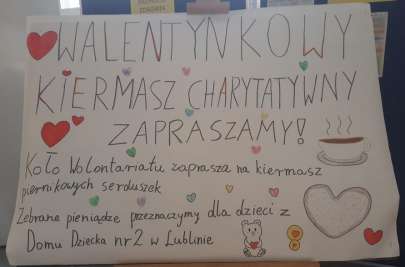 WALENTYNKOWY
KIERMASZ CHARYTATYWNY
ZAPRASZAMY!
Koło Wolontariatu zaprasza na kiermasz
piernikowych serduszek
Zebrane pieniądze przeznaczymy dla dzieci z
Domu Dziecka nr 2 w Lublinie